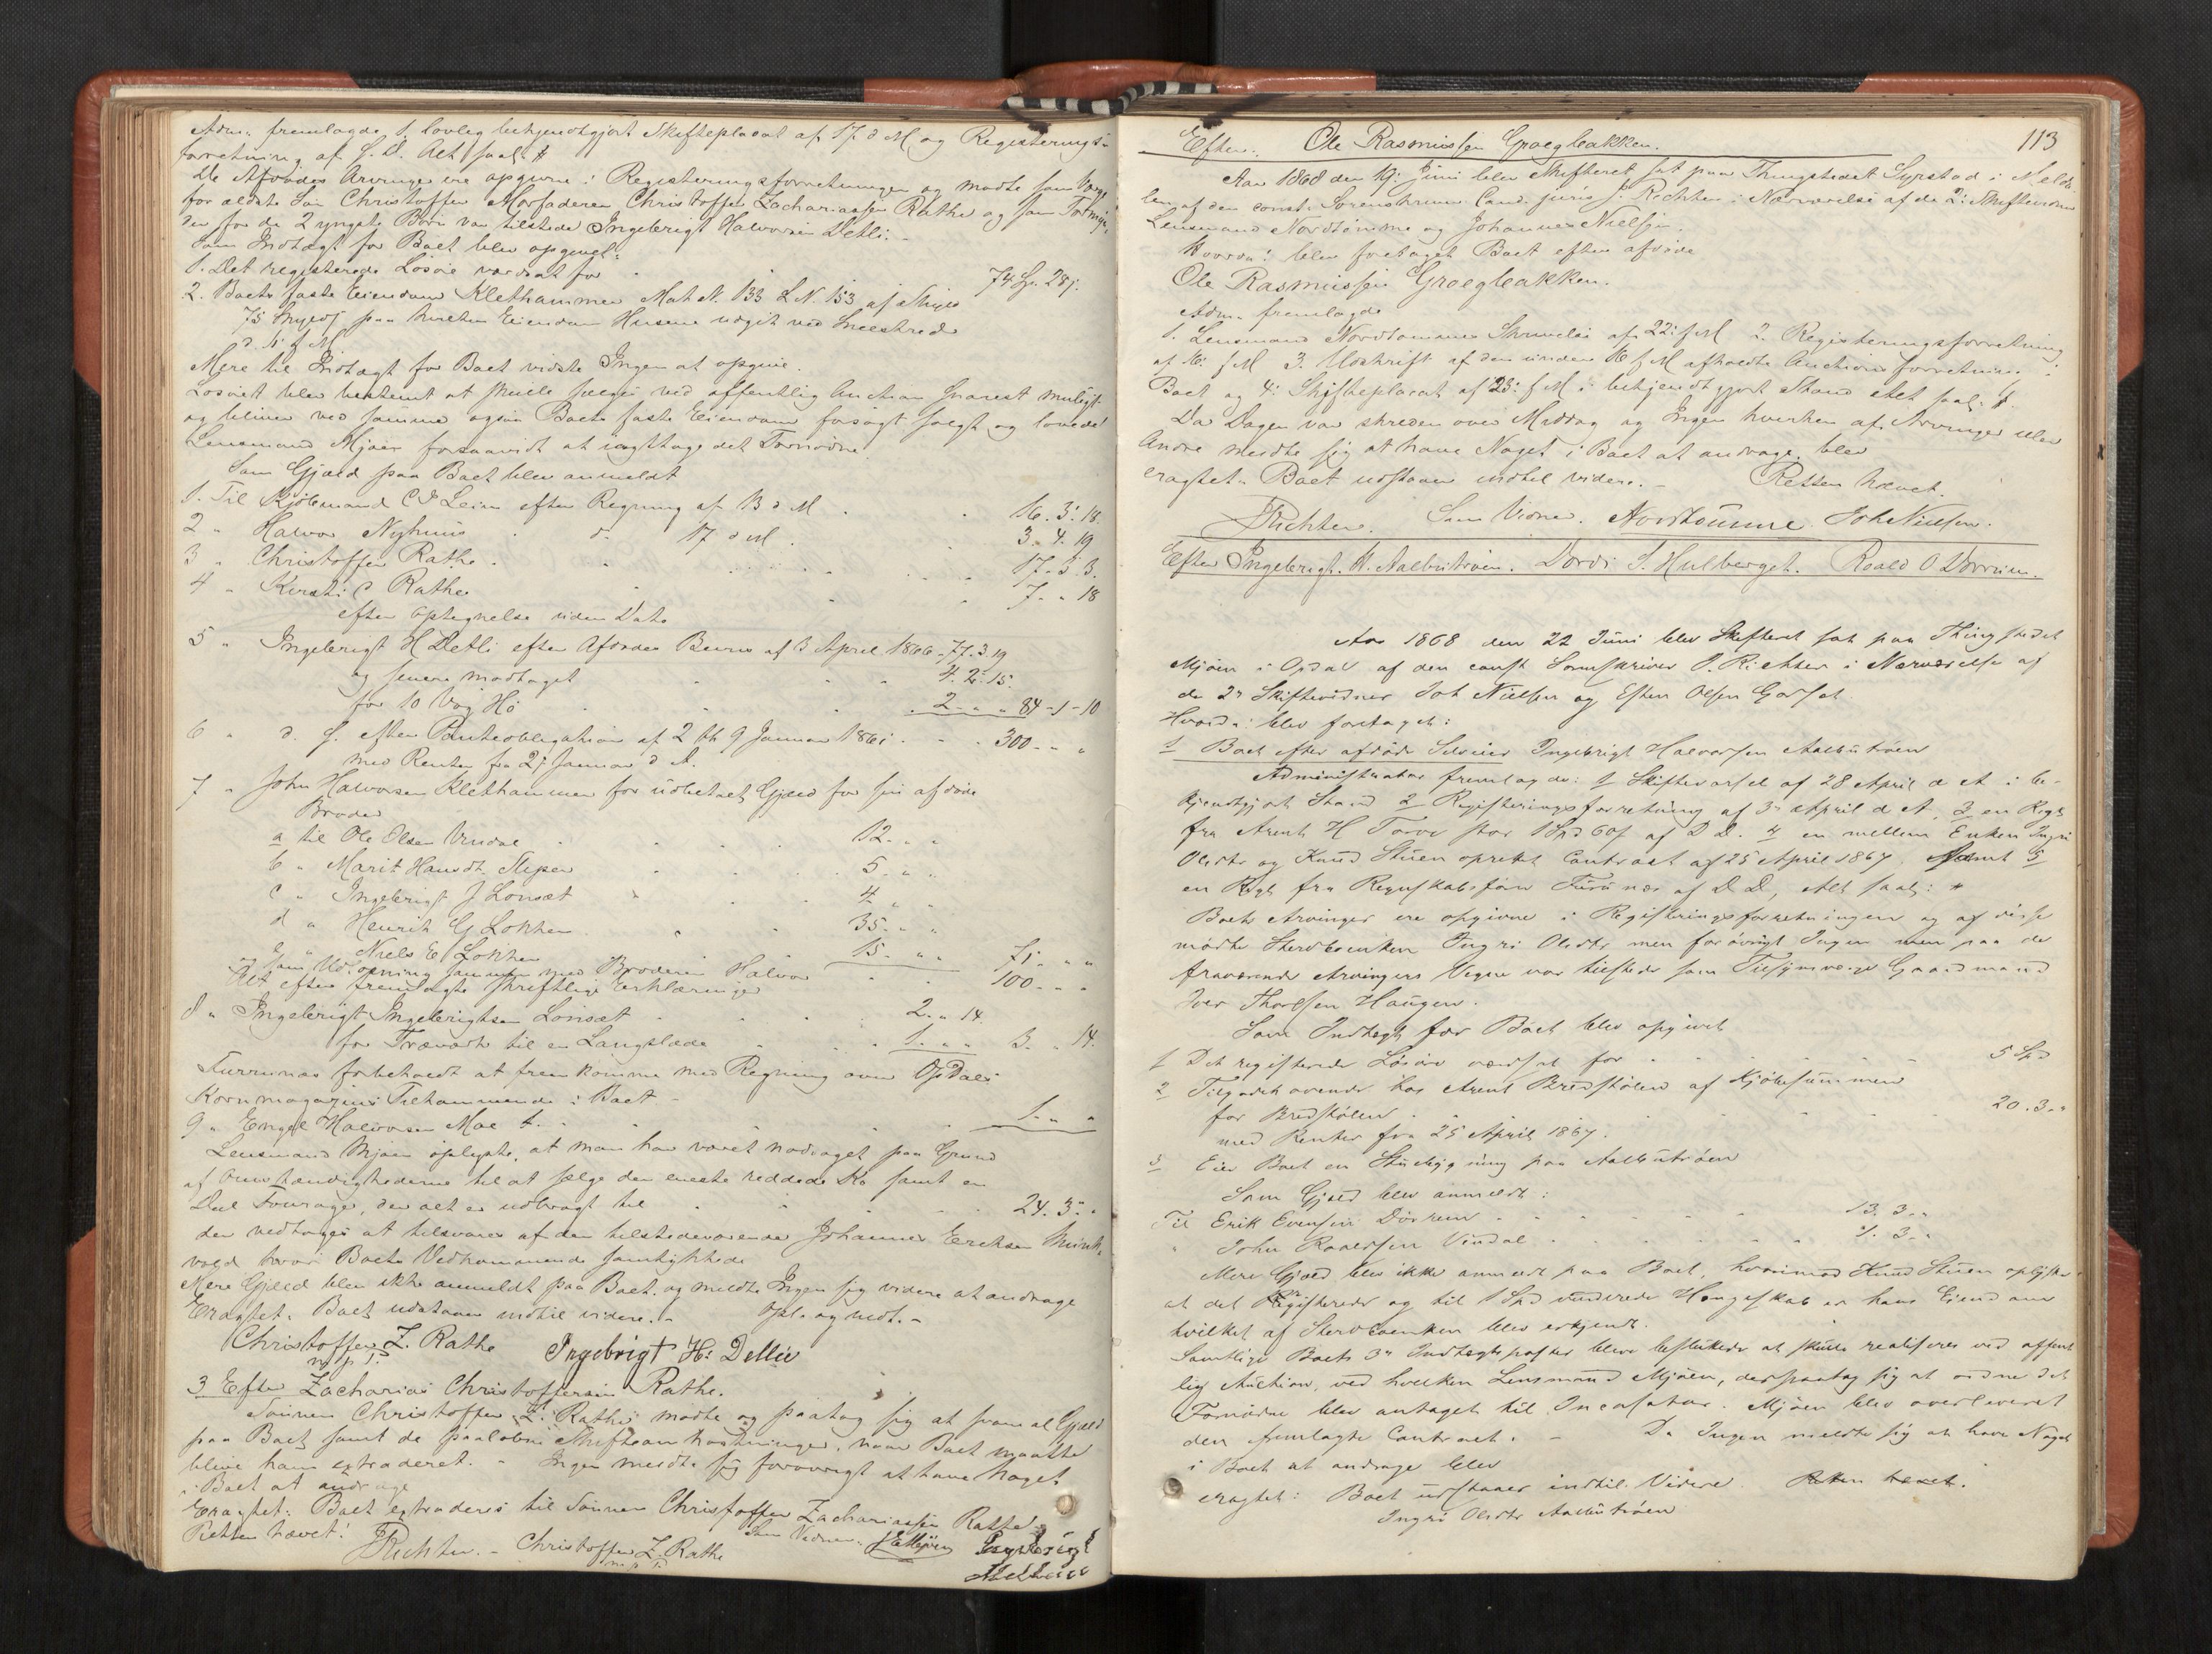 Adm. fremlagde 1. lovlig bekjendtgjort Skifteplacat af 17 d M og Registerings-
forretning af s. D. Alt saal. #
De Afdødes Arvinger ere opgivne i Registeringsforretningen og mødte som Værge
for ældste Søn Christoffer Morfaderen Christoffer Zachariassen Rathe og som Formyn-
der for de 2 yngste Børn var tilstede Ingebrigt Halvorsen Detli. -
Som Indtægt for Boet blev opgivet:
1. Det registerede Løsøre værdsat for 74 Sp. 28 s.
2. Boets faste Eiendom Klethammer Mat N. 133 L N. 153 af Skyld
75 paa hvilken Eiendom Husene
d. 1: f M.
Mere til Indtægt for Boet vidste Ingen at opgive.
Løsøret blev bestemt at skulle sælges ved offentlig Auction snarest muligt
og bliver ved samme ogsaa Boets faste Eiendom forsøgt solgt og lovede
Lensmand Mjøen forsaavidt at iagttage det Fornødne.
Som Gjæld paa Boet blev anmeldt
1. Til Kjøbmand C Leim efter Regning af 13 d. M. 16. 3. 18.
2 " Halvor Nyhuus d. 17 d M. 3. 4. 19
3 " Christoffer Rathe. 17. 3. 3.
4 " Kirsti C Rathe 7. " 18
efter Optegnelse uden Dato
5 " Ingebrigt H Detli efter Afdødes Beviis af 3 April 1866 - 77. 3 19
og senere modtaget 4. 2. 15.
for 10 Vog Hø 2 " " 84 - 1 - 10
6 " d. s. efter Panteobligation af 2 th 9 Januar 186 300 - - "
med Renter fra 2: Januar d A.
7 " John Halvorsen Klethammer for udbetalt Gjæld for sin afdøde
Broder
a til Ole Olsen Vindal 12 - " "
b " Marit Hansdt. 5 - " "
c " Ingebrigt J Lonsæt 4 " "
d " Henrik G Løkken 35 - " "
e " Niels E Løkken 15 - " " 71 - " "
og som Udløsning sammen med Broderen Halvor 100 - - "
Alt efter fremlagte skriftlige Erklæringer
8 " Ingebrigt Ingebrigtsen Lonsæt 2 - " 14.
for Træværk til en Langslæde 1. " " 3. " 14.
Furunæs forbeholdt at fremkomme med Regning over Opdals
Kornmagazins Tilkommende i Boet. -
9 " Engel Halvorsen Moe 1. " "
Lensmand Mjøen oplyste, at man har været nødsaget paa Grund
af Omstændighederne til at sælge den eneste reddede Ko samt en
Deel Fourage, der alt er udbragt til 24. 3 - "
der vedtoges at tilsvares af den tilstedeværende Johannes Erichsen
vold hvori Boets Vedkommende samtykkede
Mere Gjæld blev ikke anmeldt paa Boet, og meldte Ingen sig videre at andrage
Eragtet: Boet udstaaer indtil videre. - Opl. og vedt. -
Christoffer Z. Rathe Ingebrigt H: Dellie
m p P.
3 Efter Zacharias Christoffersen Rathe.
Sønnen Christoffer Z. Rathe mødte og paatog sig at svare al Gjæld
paa Boet samt de paaløbne Skifteomkostninger, naar Boet maatte
blive ham extraderet. - Ingen meldte sig forøvrigt at have Noget
i Boet at andrage
Eragtet: Boet extraderes til Sønnen Christoffer Zachariassen Rathe.
Retten hævet!
JRichter. - Christoffer Z. Rathe Som Vidner. Mjøen Ingebrigt
m. p. P.
113
Efter: Ole Rasmussen Graegbakken.
Aar 1868 den 19: Juni blev Skifteret sat paa Thingstedet Syrstad i Melda-
len af den const. Sorenskriver Cand. juris J. Richter i Nærværelse af de 2: Skiftevidner
Lensmand Nordtømme og Johannes Nielsen.
Hvorda: blev foretaget Boet efter afdøde
Ole Rasmussen Graegbakken.
Adm. fremlagde
1. Lensmand Nordtømmes Skrivelse af 22: f M 2. Registeringsforretning
af 16. f M 3. Udskrift af den under 16 f M afholdte Auctionsforretning i
Boet og 4: Skifteplacat af 23: f M i bekjendtgjort Stand Alt saal: #.
Da Dagen var skreden over Middag og Ingen hverken af Arvinger eller
Andre meldte sig at have Noget i Boet at andrage, blev
eragtet: Boet udstaaer indtil videre. - Retten hævet.
JRichter. Som Vidner. Nordtømme. Joh Nielsen.
Efter Ingebrigt H. Aalbutrøen. Dordi S. Hulberget. Roald O Dørrum.
Aar 1868 den 22 Juni blev Skifteret sat paa Thingstedet
Mjøen i Opdal af den const Sorenskriver J. Richter i Nærværelse af
de 2de Skiftevidner Joh Nielsen og Esten Olsen Gorset.
Hvorda: blev foretaget:
1 Boet efter afdøde Selveier Ingebrigt Halvorsen Aalbutrøen
Administrator fremlagde: 1 Skiftevarsel af 28 April d A i be-
kjendtgjort Stand 2 Registeringsforretning af 3de April d A, 3 en Regn
fra Arent H Torve stor 1 Spd 60 s af D D. 4 en mellem Enken Ingri
Olsdtr og Knud Stuen oprettet Contract af 25 April 1867. Samt 5
en Regn fra Regnskabsfører Furunæs af D. D, Alt saal: #
Boets Arvinger ere opgivne i Registeringsforretningen og af disse
mødte Stervboenken Ingri Olsdtr men forøvrigt Ingen men paa de
fraværende Arvingers Vegne var tilstede som Tilsynsværge Gaardmand
Iver Thoresen Haugen.
Som Indtægt for Boet blev opgivet
1 Det registerede Løsøre værdsat for 5 Spd
2 Tilgodehavende hos Arent Bredskølen af Kjøbesummen
for Bredskølen 20. 3. "
med Renter fra 25 April 1867.
3 Eier Boet en Stuebygning paa Aalbutrøen
Som Gjæld blev anmeldt:
Til Erik Evensen Dørrem 13. 3 "
" John Roaldsen Vindal 1. 3 "
Mere Gjæld blev ikke anmeldt paa Boet, hvorimod Knud Stuen oplyste
at det Registerede og til 1 Spd vurderede Hængeskab er hans Eiendom
hvilket af Stervboenken blev erkjendt.
Samtlige Boets 3de Indtægtsposter bleve besluttede at skulle realiseres ved offent
lig Auction, ved hvilken Lensmand Mjøen, der paatog sig at ordne det
Fornødne blev antaget til Incasator. Mjøen blev overleveret
den fremlagte Contract. - Da Ingen meldte sig at have Noget
i Boet at andrage blev
eragtet: Boet udstaaer indtil Videre. Retten hævet.
Ingri Olsdtr Aalbutrøen